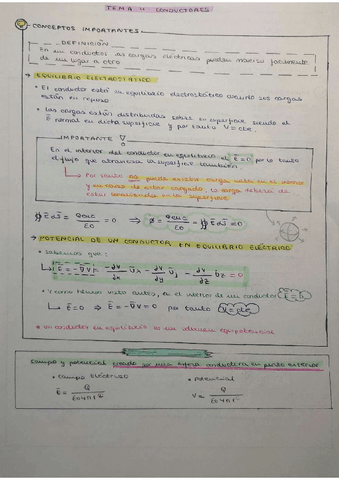 TEMA 4 CONDUCTORES
CONCEPTOS IMPORTANTES
DEFINICIÓN
En un conductor las cargas eléctricas pueden moverse facilmente
de un lugar a otro.
→ EQUILIBRIO ELECTROSTÁTICO
• El conductor está en equilibrio electrostático cuando las cargas
están en reposo
• Las cargas están distribuidas sobre su superficie siendo el
E normal en dicha superficie y por tanto V = cte.
IMPORTANTE
En el interior del conductor en equilibrio el E = 0 por lo tanto
el flujo que atraviesa la superficie también
Por tanto no puede existir carga neta en el interior
y en caso de estar cargado, la carga deberá de
estar en la superficie
∮ E ds = Qenc/ε0 = 0 ⇒ Φ = Qenc/ε0 = ∮ E ds = 0
→ POTENCIAL DE UN CONDUCTOR EN EQUILIBRIO ELÉCTRICO
• Sabemos que:
E = -∇V = -dV/dx Ux - dV/dy Uy - dV/dz Uz = 0
• Y como hemos visto antes, en el interior de un conductor E = 0
E = 0 ⇒ E = -∇V = 0 por tanto V = cte
• Un conductor en equilibrio es un volumen equipotencial
Campo y potencial creado por una esfera conductora en punto exterior
• campo eléctrico
E = Q / ε0 4π r²
• potencial
V = Q / ε0 4π r